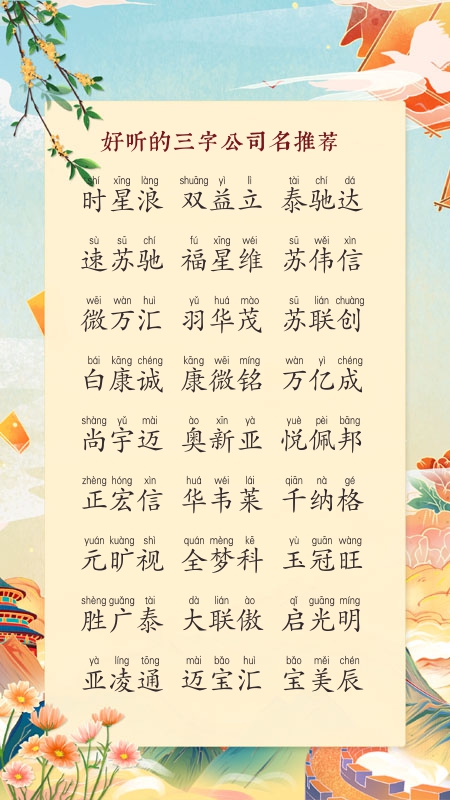 好听的三字公司名推荐
shí xīng làng shuāng yì lì tài chí dá
时星浪 双益立 泰驰达
sù sū chí fú xīng wéi sū wěi xìn
速苏驰 福星维 苏伟信
wēi wàn huì yǔ huá mào sū lián chuàng
微万汇 羽华茂 苏联创
bái kāng chéng kāng wēi míng wàn yì chéng
白康诚 康微铭 万亿成
shàng yǔ mài ào xīn yà yuè pèi bāng
尚宇迈 奥新亚 悦佩邦
zhèng hóng xìn huá wéi lái qiān nà gé
正宏信 华韦莱 千纳格
yuán kuàng shì quán mèng kē yù guān wàng
元旷视 全梦科 玉冠旺
shèng guǎng tài dà lián ào qǐ guāng míng
胜广泰 大联傲 启光明
yà líng tōng mài bǎo huì bǎo měi chén
亚凌通 迈宝汇 宝美辰